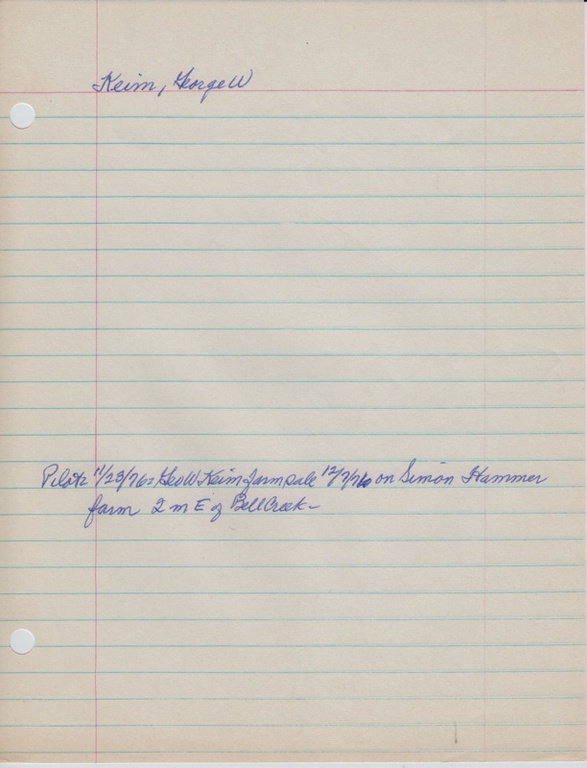 Keim, George W
Pilot 11/23/76 = Geo W Keim farm sale 12/7/76 on Simon Hammer
farm 2 m E of Bell Creek -